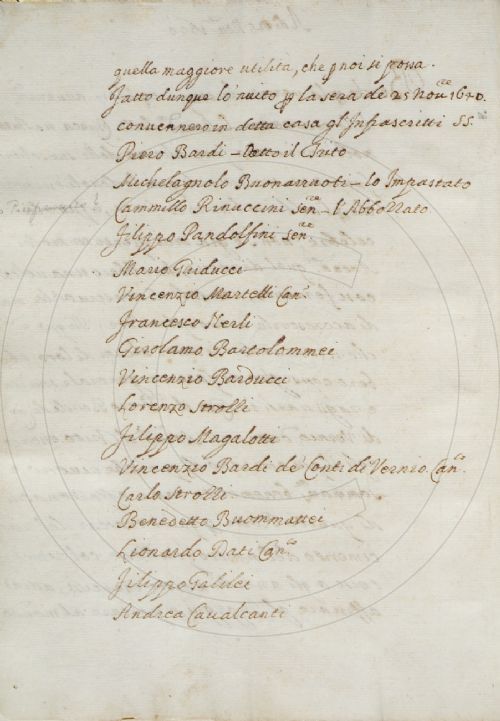 quella maggiore utilità, che p noi si possa.
Fatto dunque lo nuito p la sera de 25 Nou.re 1640.
conuennero in detta casa gl'Infrascritti SS.
Piero Bardi – detto il
Michelagnolo Buonarruoti – lo Impastato
Cammillo Rinuccini Sen.re – l'Abbozzato
Filippo Pandolfini Sen.re
Mario Guiducci
Vincenzio Martelli Can.co
Francesco Nerli
Girolamo Bartolommei
Vincenzio Barducci
Lorenzo Strozzi
Filippo Magalotti
Vincenzio Bardi de Conti di Vernio Can.co
Carlo Strozzi
Benedetto Buommattei
Lionardo Dati Can.co
Filippo Galilei
Andrea Caualcanti